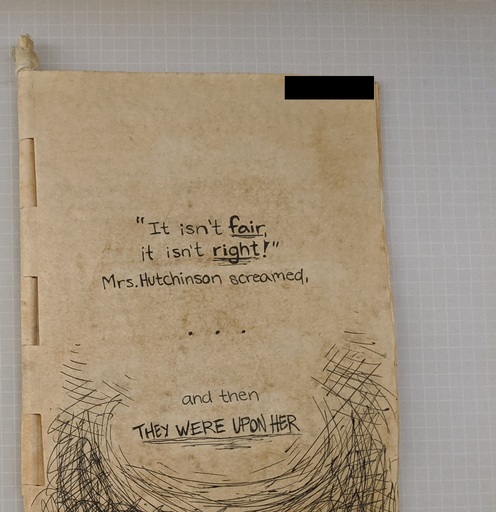 "It isn't fair,
it isn't right!"
Mrs. Hutchinson screamed,
. . .
and then
THEY WERE UPON HER